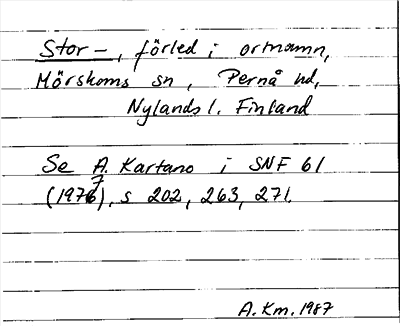 Stor-, förled i ortnamn,
Mörskoms sn, Pernå hd,
Nylands l. Finland
Se A. Kartano i SNF 61
(1976), s 202, 263, 271.
A. Km. 1987